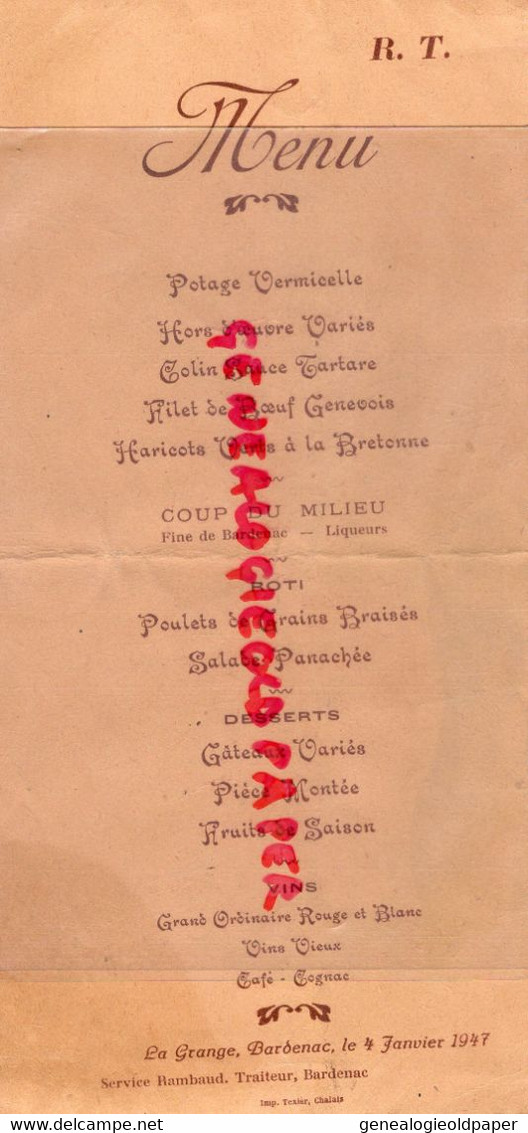 R. T.
Menu
Potage Vermicelle
Hors d'œuvre Variés
Colin Sauce Tartare
Filet de Bœuf Genevois
Haricots Verts à la Bretonne
COUP DU MILIEU
Fine de Bardenac — Liqueurs
ROTI
Poulets de Grains Braisés
Salade Panachée
DESSERTS
Gâteaux Variés
Pièce Montée
Fruits de Saison
VINS
Grand Ordinaire Rouge et Blanc
Vins Vieux
Café - Cognac
La Grange, Bardenac, le 4 Janvier 1947
Service Rambaud. Traiteur, Bardenac
Imp. Texier, Chalais
GENEALOGIEOLDPAPER
delcampe.net
genealogieoldpaper